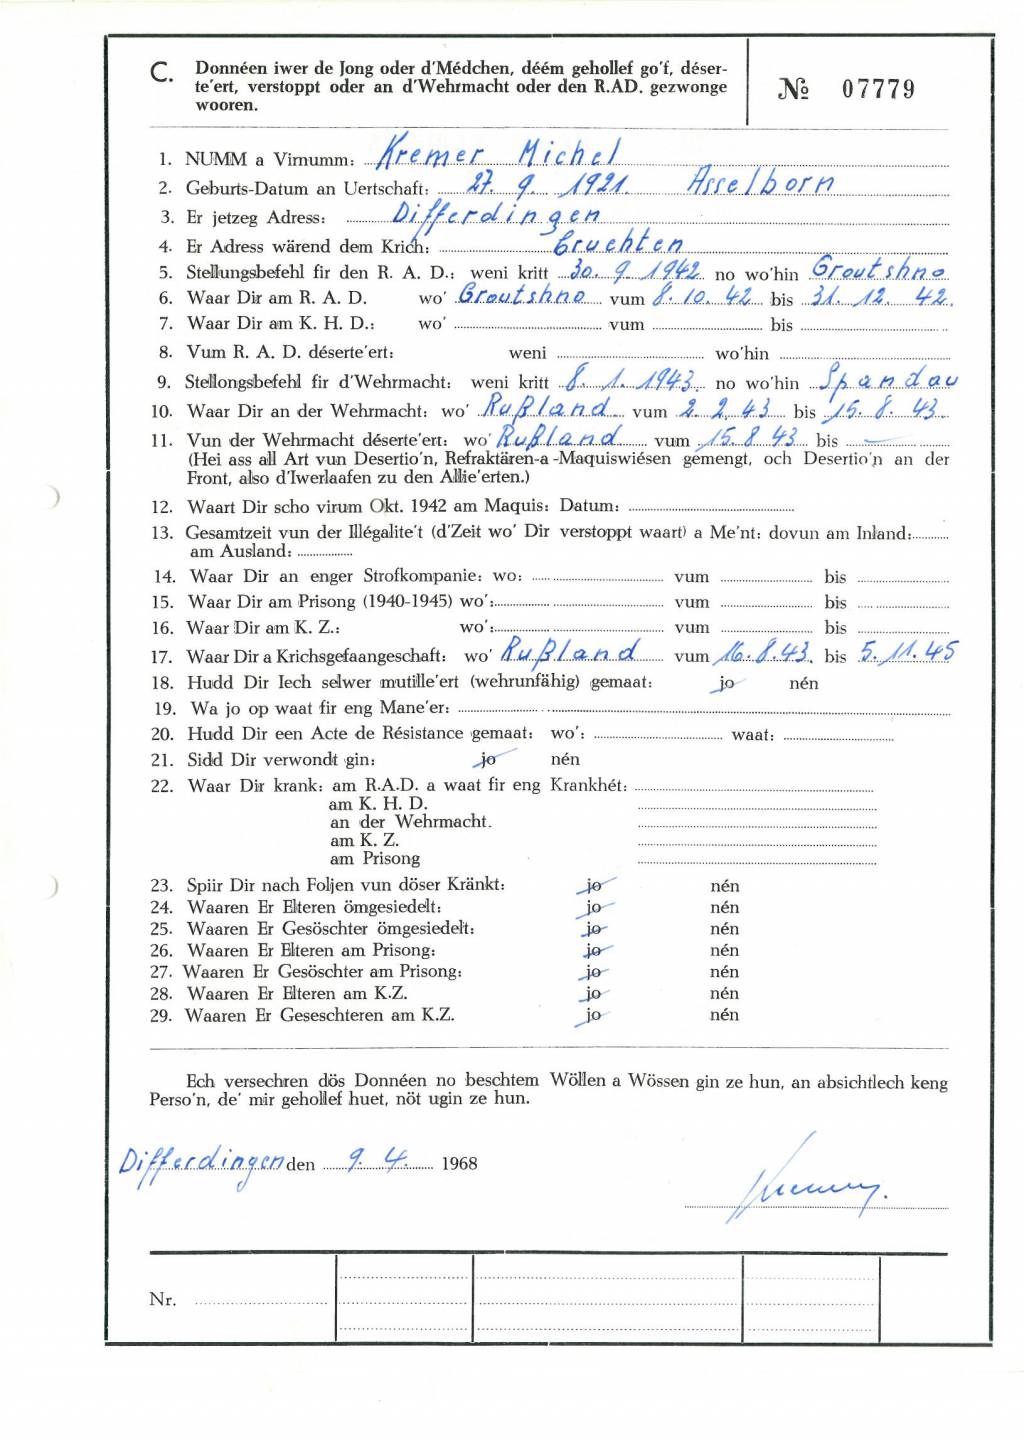 C. Donnéen iwer de Jong oder d'Médchen, déém gehollef go'f, déser-
te'ert, verstoppt oder an d'Wehrmacht oder den R.AD. gezwonge
wooren.
№ 07779
1. NUMM a Virnumm: Kremer Michel
2. Geburts-Datum an Uertschaft: 27. 9. 1921 Asselborn
3. Er jetzeg Adress: Differdingen
4. Er Adress wärend dem Krich: Cruchten
5. Stellungsbefehl fir den R. A. D.: weni kritt 30. 9. 1942 no wo'hin Groutshno
6. Waar Dir am R. A. D. wo' Groutshno vum 8. 10. 42 bis 31. 12. 42.
7. Waar Dir am K. H. D.: wo' vum bis
8. Vum R. A. D. déserte'ert: weni wo'hin
9. Stellongsbefehl fir d'Wehrmacht: weni kritt 8. 1. 1943. no wo'hin Spandau
10. Waar Dir an der Wehrmacht: wo' Rußland vum 2. 2. 43 bis 15. 8. 43.
11. Vun der Wehrmacht déserte'ert: wo' Rußland vum 15. 8 43 bis —
(Hei ass all Art vun Desertio'n, Refraktären-a-Maquiswiésen gemengt, och Desertio'n an der
Front, also d'Iwerlaafen zu den Allie'erten.)
12. Waart Dir scho virum Okt. 1942 am Maquis: Datum:
13. Gesamtzeit vun der Illégalite't (d'Zeit wo' Dir verstoppt waart) a Me'nt: dovun am Inland:
am Ausland:
14. Waar Dir an enger Strofkompanie: wo: vum bis
15. Waar Dir am Prisong (1940-1945) wo': vum bis
16. Waar Dir am K. Z.: wo': vum bis
17. Waar Dir a Krichsgefaangeschaft: wo' Rußland vum 16. 8. 43. bis 5. 11. 45
18. Hudd Dir Iech selwer mutille'ert (wehrunfähig) gemaat: jo nén
19. Wa jo op waat fir eng Mane'er:
20. Hudd Dir een Acte de Résistance gemaat: wo': waat:
21. Sidd Dir verwondt gin: jo nén
22. Waar Dir krank: am R.A.D. a waat fir eng Krankhét:
am K. H. D.
an der Wehrmacht.
am K. Z.
am Prisong
23. Spiir Dir nach Foljen vun döser Kränkt: jo nén
24. Waaren Er Elteren ömgesiedelt: jo nén
25. Waaren Er Gesöschter ömgesiedelt: jo nén
26. Waaren Er Elteren am Prisong: jo nén
27. Waaren Er Gesöschter am Prisong: jo nén
28. Waaren Er Elteren am K.Z. jo nén
29. Waaren Er Geseschteren am K.Z. jo nén
Ech versechren dös Donnéen no beschtem Wöllen a Wössen gin ze hun, an absichtlech keng
Perso'n, de' mir gehollef huet, nöt ugin ze hun.
Differdingen den 9. 4. 1968
Nr.